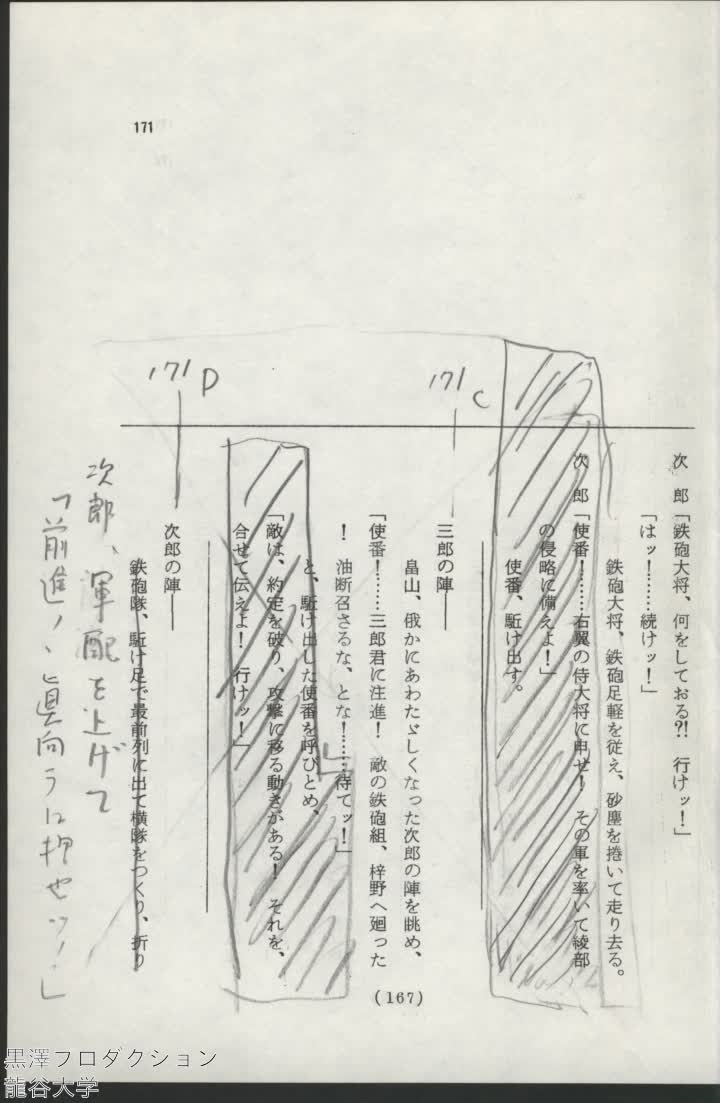 171
次　郎「鉄砲大将、何をしておる?!　行けッ!」
「はッ!……続けッ!」
鉄砲大将、鉄砲足軽を従え、砂塵を捲いて走り去る。
次　郎「使番!……右翼の侍大将に申せ!　その軍を率いて綾部
の侵略に備えよ!」
使番、駈け出す。
171C
三郎の陣――
畠山、俄かにあわたゞしくなった次郎の陣を眺め、
「使番!……三郎君に注進!　敵の鉄砲組、梓野へ廻った
!　油断召さるな、とな!……待てッ!」
と、駈け出した使番を呼びとめ、
「敵は、約定を破り、攻撃に移る動きがある!　それを、
合せて伝えよ!　行けッ!」
171D
次郎の陣――
鉄砲隊、駈け足で最前列に出て横隊をつくり、折り
次郎、軍配を上げて
「前進!、真向うに押せッ!」
(167)
黒澤プロダクション
龍谷大学